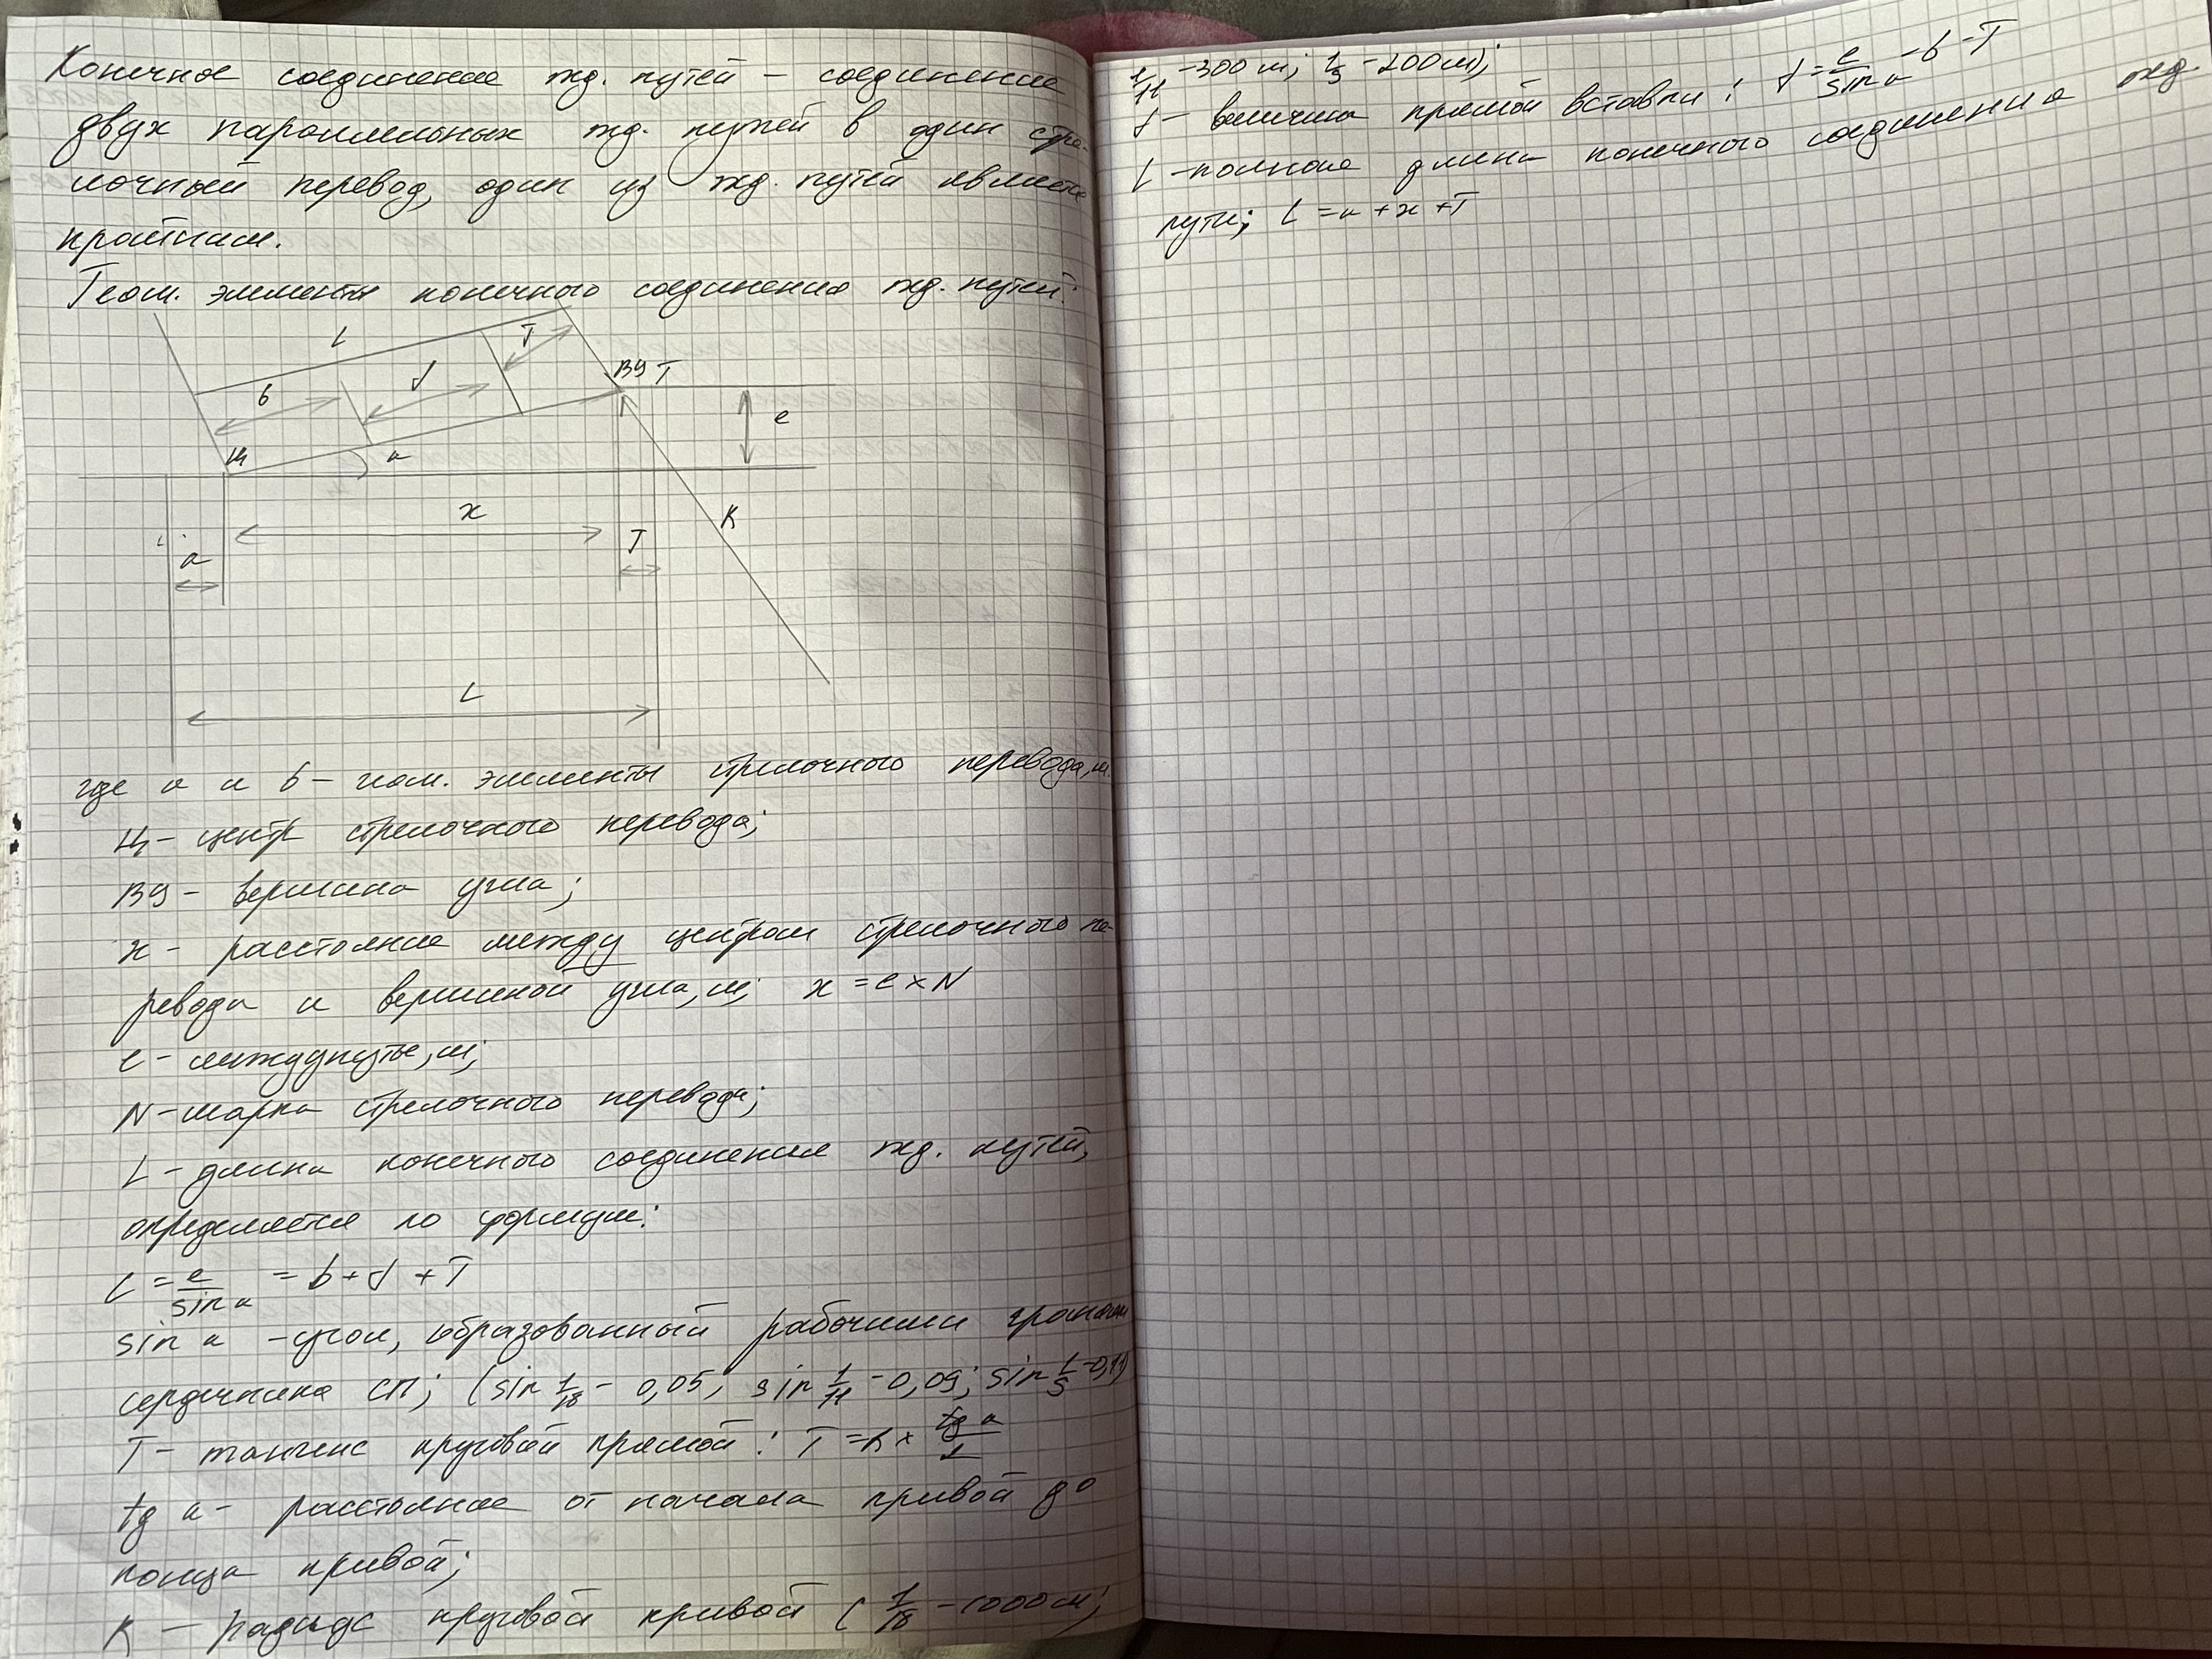 Конечное соединение жд. путей – соединение
двух параллельных жд. путей в один стре-
лочный перевод, один из жд. путей является
крайним.
Геом. элементы конечного соединения жд. путей:
L
T
б
d
ВУ T
e
Ц
α
x
K
a
T
L
где а и б – геом. элементы стрелочного перевода, м.
Ц – центр стрелочного перевода;
ВУ – вершина угла;
x – расстояние между центром стрелочного пе-
ревода и вершиной угла, м; x = e × N
e – междупутье, м;
N – марка стрелочного перевода;
L – длина конечного соединения жд. путей,
определяется по формуле:
L = e/sin α = b + d + T
sin α – угол, образованный рабочими гранями
сердечника СП; (sin 1/18 – 0,05; sin 1/11 – 0,09; sin 1/9 – 0,11)
T – тангенс круговой прямой: T = R × tg α/2
tg α – расстояние от начала кривой до
конца кривой;
R – радиус круговой кривой ( 1/18 – 1000 м;
1/11 – 300 м; 1/9 – 200 м);
d – величина прямой вставки: d = e/sin α – b – T
L – полная длина конечного соединения жд.
пути; L = a + x + T